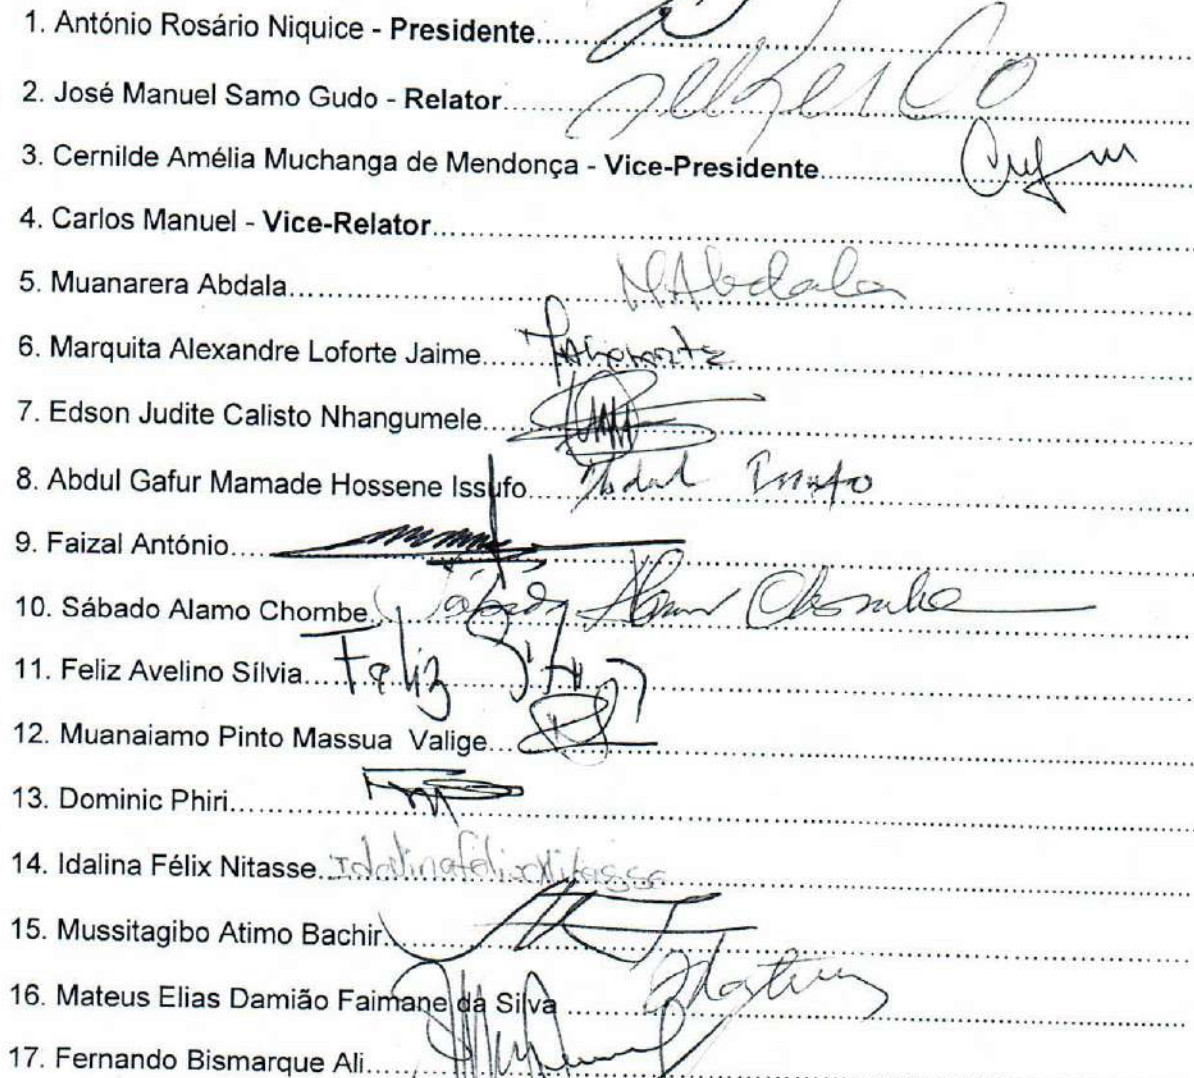 1. António Rosário Niquice - Presidente
2. José Manuel Samo Gudo - Relator
3. Cernilde Amélia Muchanga de Mendonça - Vice-Presidente
4. Carlos Manuel - Vice-Relator
5. Muanarera Abdala MAbdala
6. Marquita Alexandre Loforte Jaime
7. Edson Judite Calisto Nhangumele
8. Abdul Gafur Mamade Hossene Issufo Abdul Issufo
9. Faizal António
10. Sábado Alamo Chombe Sábado Alamo Chombe
11. Feliz Avelino Sílvia Feliz Sílvia
12. Muanaiamo Pinto Massua Valige
13. Dominic Phiri
14. Idalina Félix Nitasse Idalina félix Nitasse
15. Mussitagibo Atimo Bachir
16. Mateus Elias Damião Faimane da Silva
17. Fernando Bismarque Ali